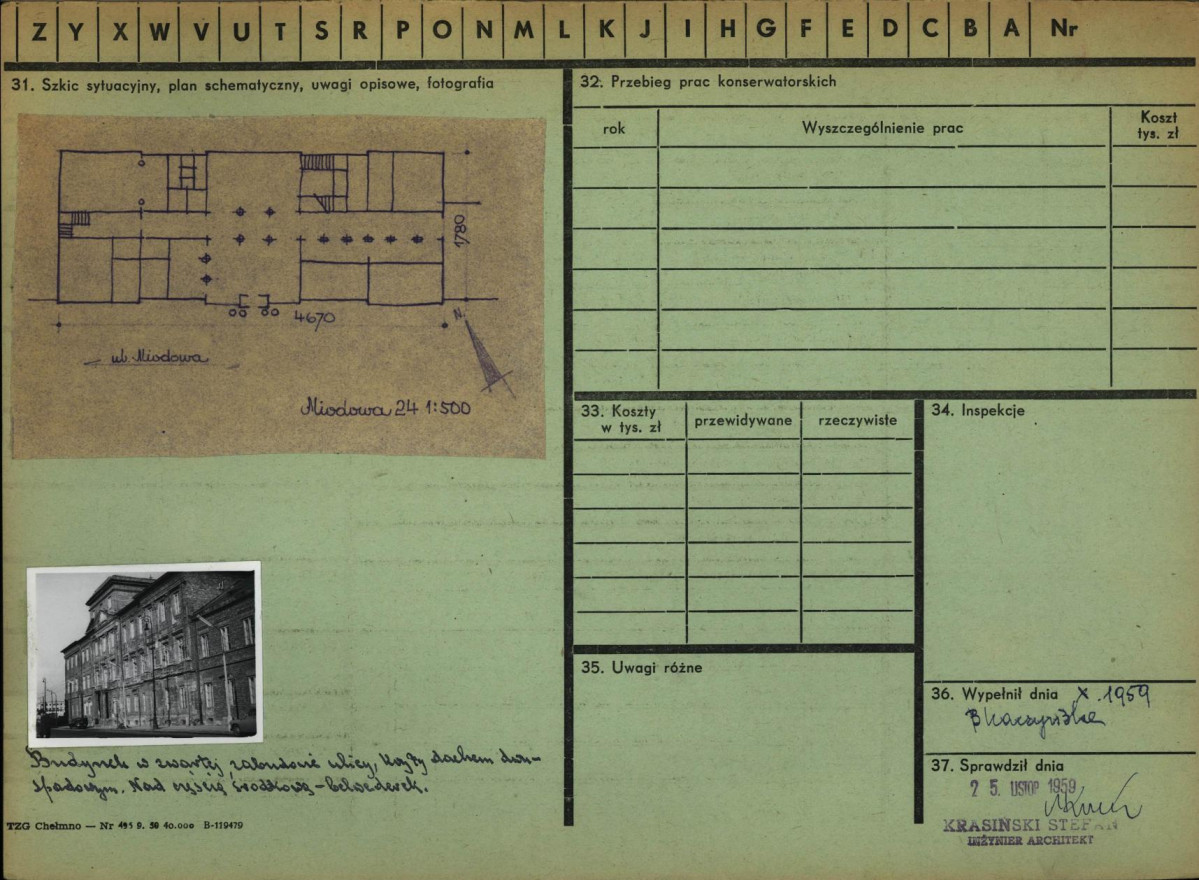 Z Y X W V U T S R P O N M L K J I H G F E D C B A Nr
31. Szkic sytuacyjny, plan schematyczny, uwagi opisowe, fotografia
1780
4670
N.
ul. Miodowa
Miodowa 24 1:500
Budynek w zwartej zabudowie ulicy, kryty dachem dwu-
spadowym. Nad częścią środkową – belwederek.
TZG Chełmno — Nr 495 9. 50 40.000 B-119479
32. Przebieg prac konserwatorskich
rok Wyszczególnienie prac Koszt
tys. zł
33. Koszty
w tys. zł
przewidywane rzeczywiste
34. Inspekcje
35. Uwagi różne
36. Wypełnił dnia X. 1959
B Kaczyńska
37. Sprawdził dnia
25. LISTOP 1959
KRASIŃSKI STEFAN
INŻYNIER ARCHITEKT